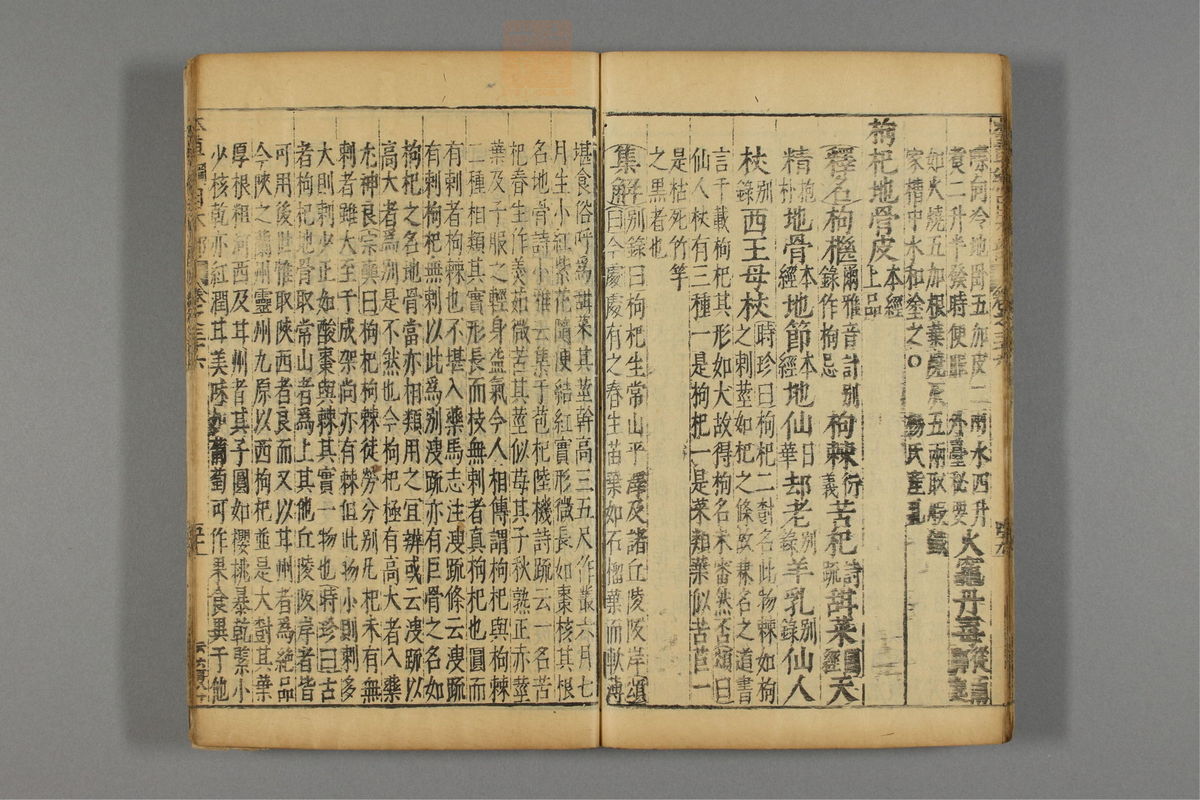 毒令地骨五加皮二兩水四升火竈丹毒從
煑二升半發時便服外臺秘要
如火燒五加根葉燒灰五兩取煅鐵
家槽中水和塗之○楊氏產乳
枸杞地骨皮本經上品
釋名枸檵爾雅音計別錄作枸忌枸棘衍義苦杞詩疏甜菜圖經天
精抱朴地骨本經地節本經地仙日華却老別錄羊乳別錄仙人
杖別錄西王母杖時珍曰枸杞二樹名此物棘如枸
之刺莖如杞之條故兼名之道書
言千載枸杞其形如犬故得枸名未審然否頌曰
仙人杖有三種一是枸杞一是菜類葉似苦苣一
是枯死竹竿
之黑者也
集解別錄曰枸杞生常山平澤及諸丘陵阪岸頌
曰今處處有之春生苗葉如石榴葉而軟薄
堪食俗呼為甜菜其莖幹高三五尺作叢六月七
月生小紅紫花隨便結紅實形微長如棗核其根
名地骨詩小雅云集于苞杞陸機詩疏云一名苦
杞春生作羹茹微苦其莖似莓其子秋熟正赤莖
葉及子服之輕身益氣今人相傳謂枸杞與枸棘
二種相類其實形長而枝無刺者真枸杞也圓而
有刺者枸棘也不堪入藥馬志注溲疏條云溲疏
有刺枸杞無刺以此為別溲疏亦有巨骨之名如
枸杞之名地骨當亦相類用之宜辨或云溲疏以
高大者為別是不然也今枸杞極有高大者入藥
尤神良宗奭曰枸杞枸棘徒勞分別凡杞未有無
刺者雖大至于成架尚亦有棘但此物小則刺多
大則刺少正如酸棗與棘其實一物也時珍曰古
者枸杞地骨取常山者為上其他丘陵阪岸者皆
可用後世惟取陝西者良而又以甘州者為絕品
今陝之蘭州靈州九原以西枸杞並是大樹其葉
厚根粗河西及甘州者其子圓如櫻桃暴乾緊小
少核乾亦紅潤甘美味如葡萄可作果食異于他